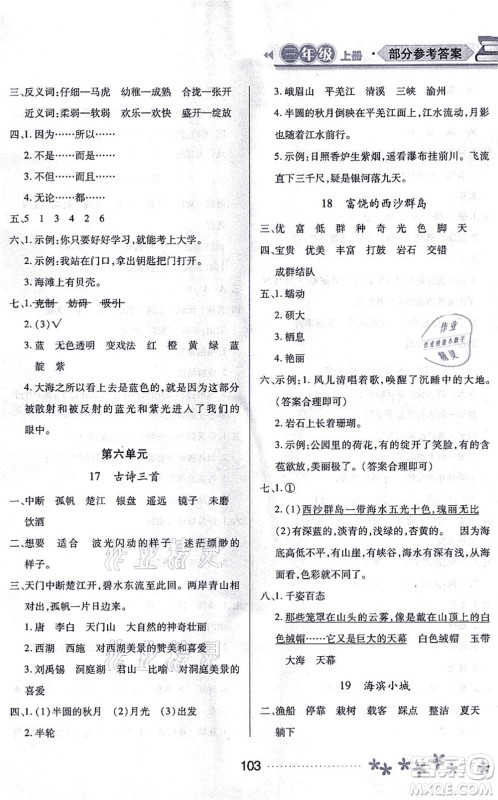 三年级 上册 · 部分参考答案
三、反义词:仔细—马虎 幼稚—成熟
近义词:柔弱—软弱 欢乐—欢快 盛开—绽放
四、1.因为……所以……
2.不是……而是……
3.不但……而且……
4.无论……都……
五、5 1 3 4 2 6
六、1.示例:你只要好好学习,就能考上大学。
2.示例:我从口袋里,拿出钥匙把门打开。
3.海滩上有贝壳。
七、1.克制 妨碍 吸引
2.(3)√
3.蓝 无色透明 变戏法 红 橙 黄 绿 蓝
靛 紫
4.大海之所以看起来是蓝色的,是因为这部分
被散射和被反射的蓝光和紫光进入了我们的
眼中。
第六单元
17 古诗三首
一、中断 孤帆 楚江 银盘 遥远 镜子 未磨
饮酒
二、想要 适合 波光闪动的样子 迷茫缥缈的样
子 美好。
三、天门中断楚江开,碧水东流至此回。两岸青山相
对出,孤帆一片日边来。
1.唐 李白 天门山 喜爱
2.西湖 施施 对西湖美景的赞美和喜爱
3.刘禹锡 洞庭湖 君山 对洞庭湖美景的
喜爱
四、1.(1)半圆的秋月 (2)月影 (3)出发
2.半轮
3.峨眉山 平羌江 清溪 三峡 渝州
4.半圆的秋月倒映在平羌江面,江水流动,月影
也随着江水前行。
5.示例:日照香炉生紫烟,遥看瀑布挂前川。飞流
直下三千尺,疑是银河落九天。
18 富饶的西沙群岛
一、优 富 低 群 种 奇 光 色 脚 天
二、宝贵 优美 丰富 打捞 岩石 交错
成群结队
五、1.蠕动
2.硕大
3.栖息
4.艳丽
六、示例:1.风儿清唱着歌,唤醒了沉睡中的大地。
(答案合理即可)
2.岩石上长满了绿苔。
3.示例:公园里的荷花,有的绽放了笑脸,有的含
苞欲放,美丽极了。(答案合理即可)
七、1.①
2.(1)西沙群岛一带海水五光十色,瑰丽无比
(2)有深蓝的,淡青的,浅绿的,杏黄的。 因为海
底高低不平,有山崖,有峡谷,海水有深有浅,从
海面看,色彩就不同了。
八、1.千姿百态
2.那些笼罩在山头的云雾,像是戴在山顶上的白
色绒帽……它又是巨大的天幕 白色绒帽 雪带
大海 天幕
19 海滨小城
一、渔船 停靠 栽树 载客 踩点 整洁 夏天
躺下
103